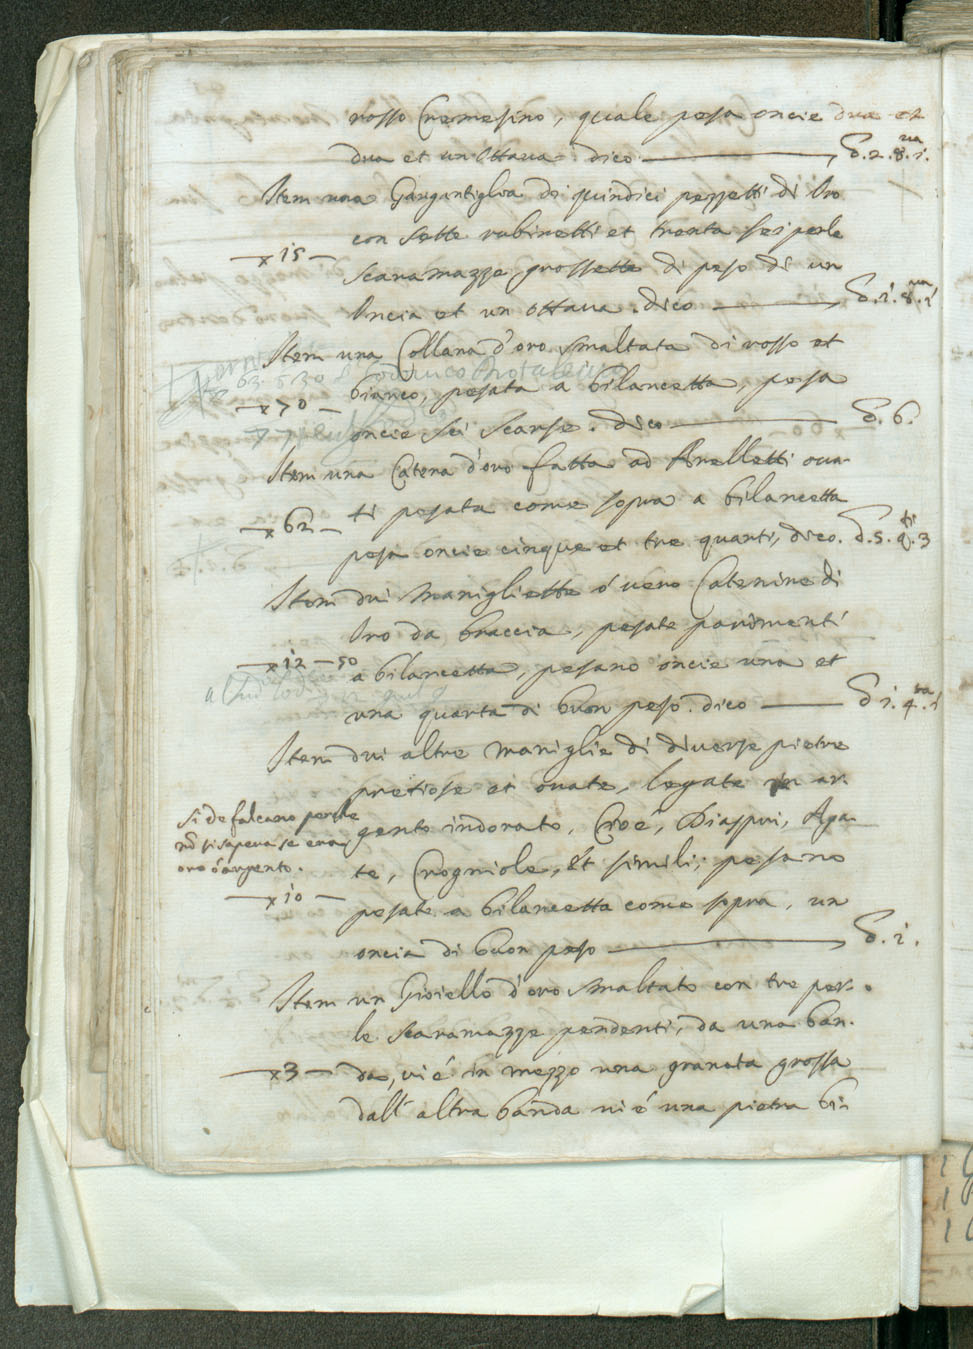 rosso Cremesino, quale pesa oncie dua et
dua et un Ottava. dico ——— ℥. 2. 8.va 1.
Item una Gargantiglia di quindici pezzetti di Oro
con sette rubinetti et trenta sei perle
—x 15—
scaramazze grossette di peso di un
Oncia et un ottava. dico ——— ℥. 1. 8.va 1
Item una Collana d'oro smaltata di rosso et
bianco, pesata a bilancetta, pesa
—x 70—
oncie sei scarse. dico ——— ℥. 6.
Item una Catena d'oro fatta ad Anelletti oua-
ti pesata come sopra a bilancetta
—x 62—
pesa oncie cinque et tre quarti, dico. ℥. 5. q.ti 3
Item dui Manigliette ó vero Catenine di
Oro da braccia, pesate parimenti
—x 12—50
a bilancetta, pesano oncie una et
una quarta di buon peso. dico ——— ℥ 1. 4.ta 1
Item dui altre Maniglie di diverse pietre
pretiose et ouate, legate in ar-
Si defalcano perche
nō si sapeva se era
oro ó argento.
gento indorato, Cioé, Diaspri, Aga-
te, Crogniole, et simili; pesano
—x 10—
pesate a bilancetta come sopra, un
oncia di buon peso ——— ℥. 1.
Item un Gioiello d'oro smaltato con tre per-
le scaramazze pendenti, da una ban-
—x 3—
da, vi é in mezzo una granata grossa
dall'altra banda ui é una pietra bi-